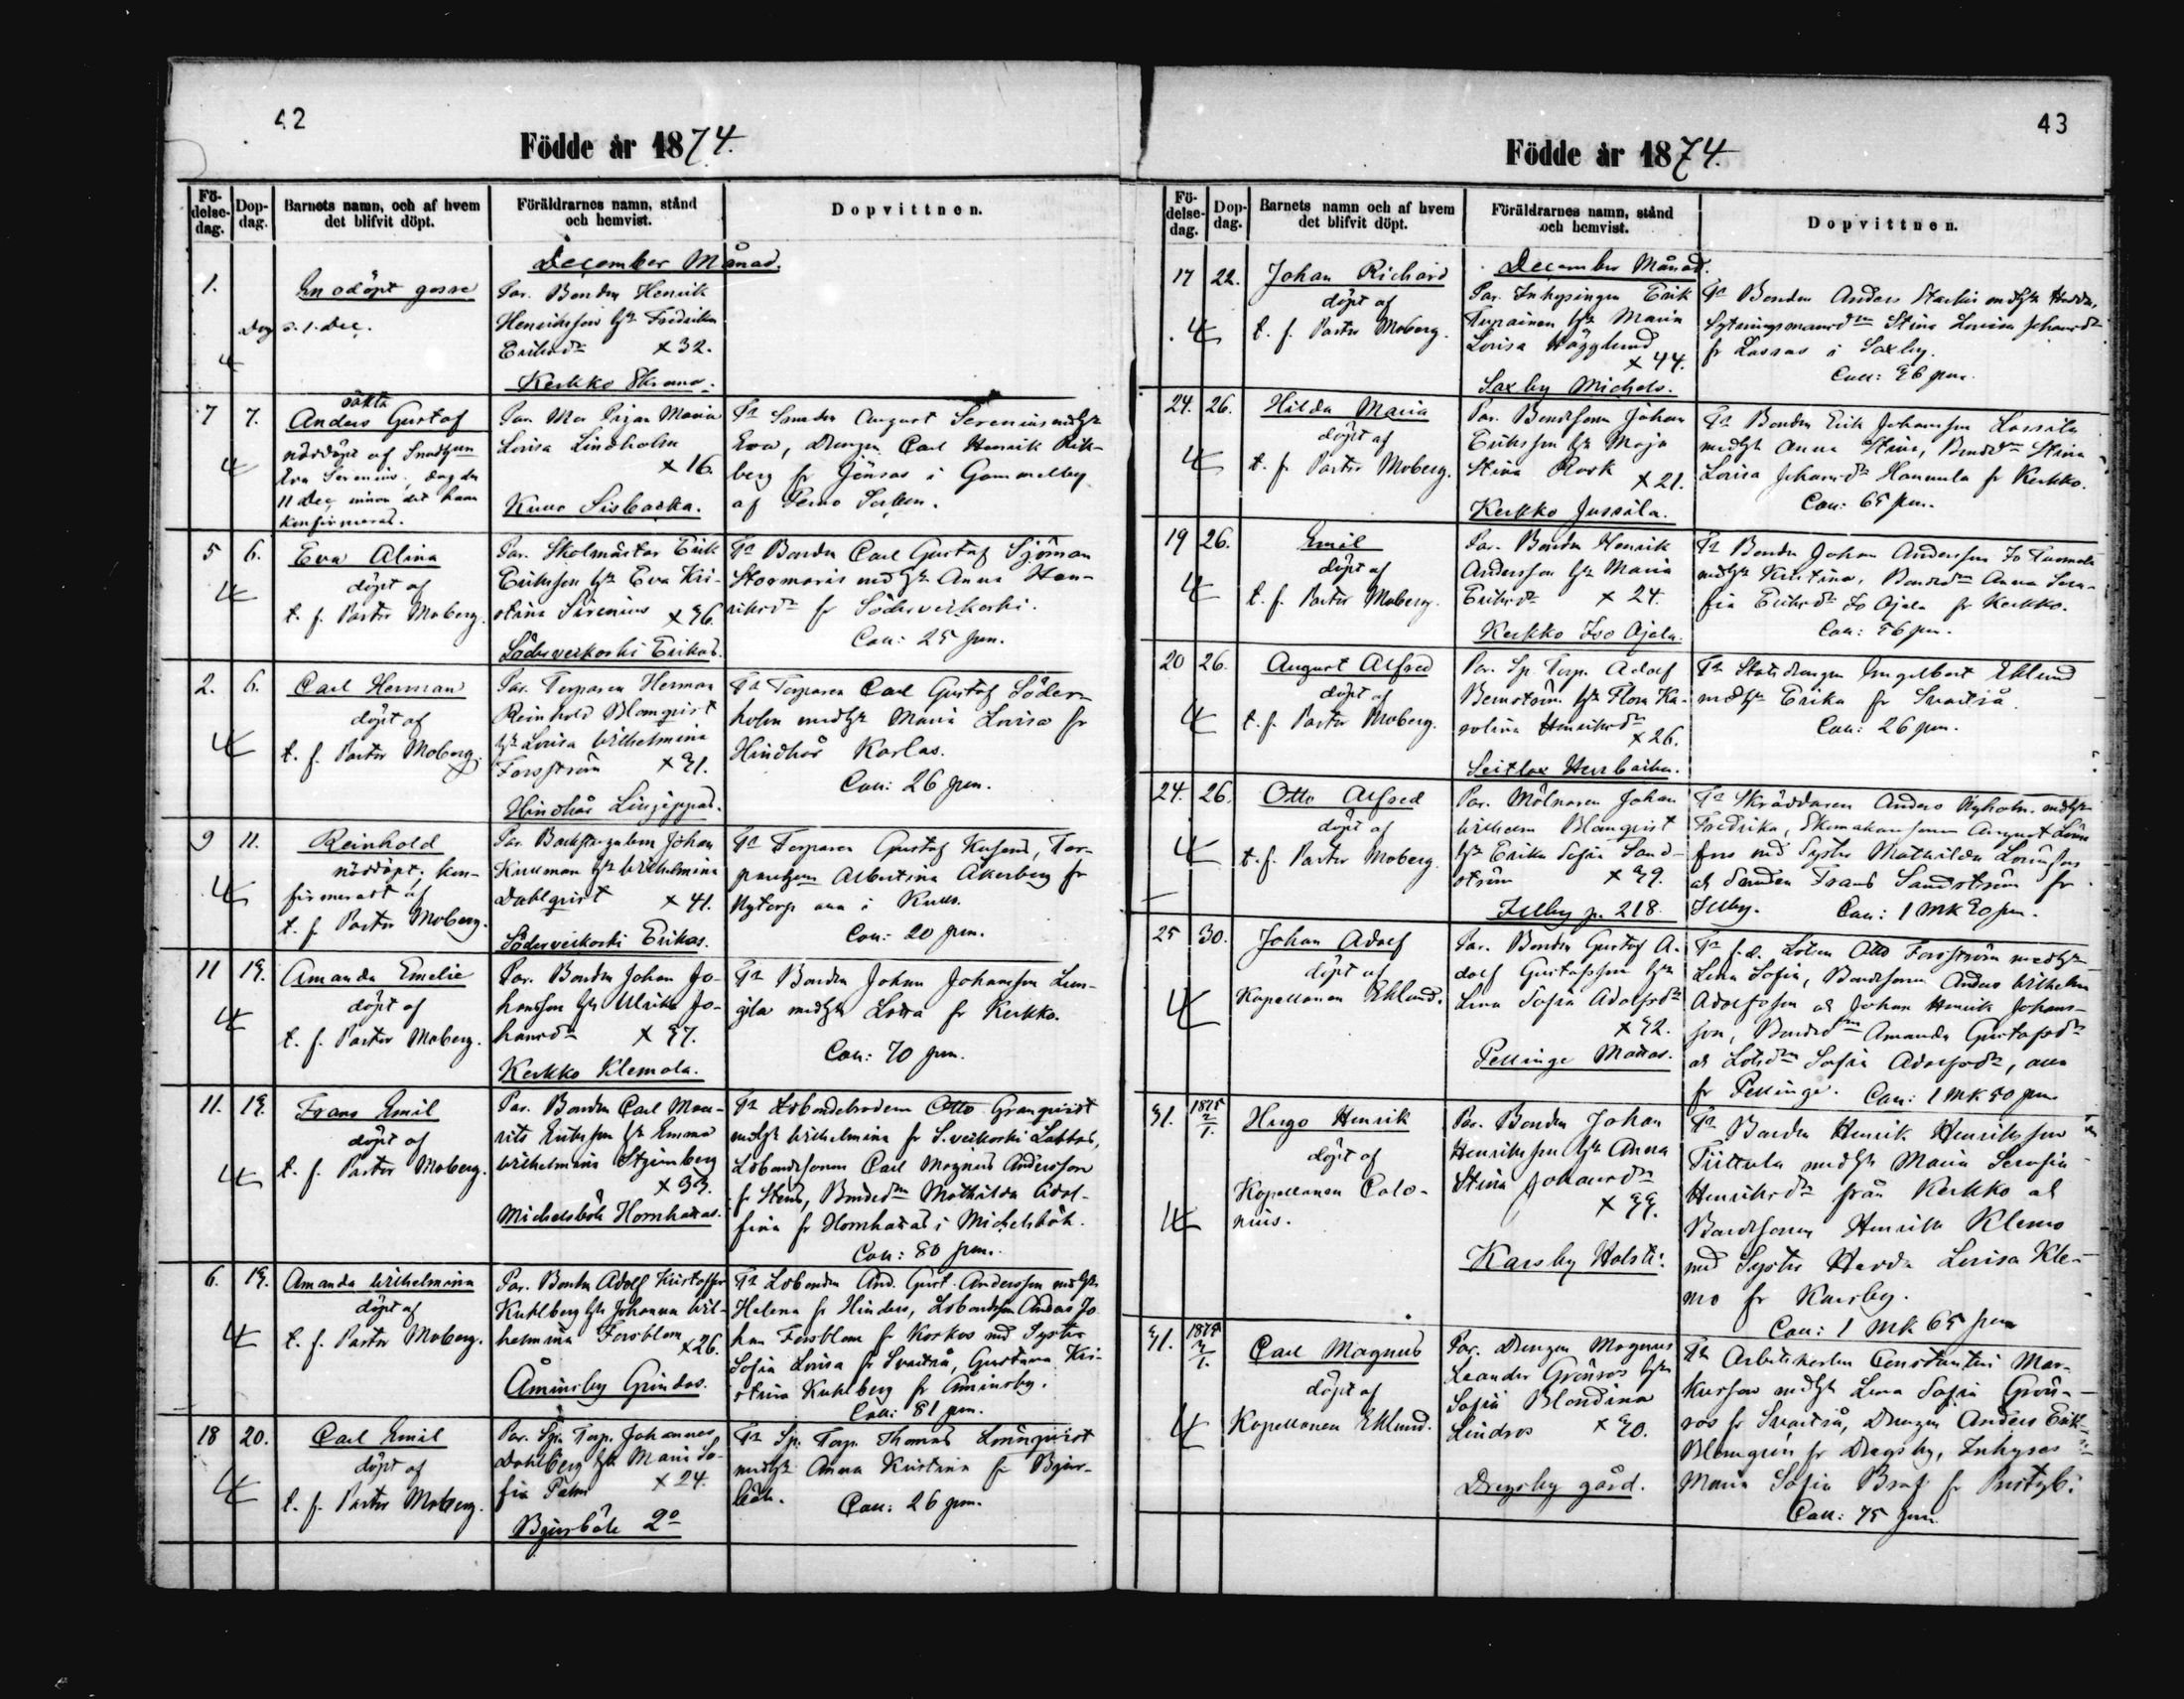 42
Födde år 1874.
Fö-
delse-
dag.
Dop-
dag.
Barnets namn, och af hvem
det blifvit döpt.
Föräldrarnes namn, stånd
och hemvist.
Dopvittnen.
December Månad.
1.
En odöpt gosse
dog d. 1. Dec.
Par. Bonden Henrik
Henriksson hu Fredrika
Eriksdr x 32.
Kerkko Skrans.
7 7.
oäkta
Anders Gustaf
nöddöpt af
Eva Serenius, dog den
11 Dec innan det hann
konfirmeras.
Maria
Lovisa Lindholm
x 16.
Kuus Sisbacka.
August Serenius
Eva, Drengen Carl Henrik Rik-
berg fr Jönsas i Gammelby
af Perno Socken.
5 6.
Eva Alina
döpt af
t. f. Pastor Moberg.
Par. Skolmästar Erik
Eriksson hu Eva Kri-
stina Serenius x 36.
Söderveckoski Erikas.
Bonden Carl Gustaf Sjöman
Stormaris med hu Anna Hen-
riksdr fr Söderveckoski.
Con: 25 pm.
2. 6.
Carl Herman
döpt af
t. f. Pastor Moberg.
Par. Torparen Herman
Reinhold Blomqvist
hu Lovisa Wilhelmina
Forsström x 31.
Hindhår Linjeppas.
Torparen Carl Gustaf Söder-
holm med hu Maria Lovisa fr
Hindhår Karlas.
Con: 26 pm.
9 11.
Reinhold
nöddöpt, kon-
firmeradt af
t. f. Pastor Moberg.
Johan
Kullman hu Wilhelmina
Dahlqvist x 41.
Söderveckoski Erikas.
Torparen Gustaf
Albertina Åkerberg fr
Nytorp i Kuus.
Con: 20 pm.
11 19.
Amanda Emelie
döpt af
t. f. Pastor Moberg.
Par. Bonden Johan Jo-
hansson hu Ulrika Jo-
hansdr x 37.
Kerkko Klemola.
Bonden Johan Johansson
med hu Lovisa fr Kerkko.
Con: 70 pm.
11. 19.
Frans Emil
döpt af
t. f. Pastor Moberg.
Par. Bonden Carl Mau-
rits Eriksson hu Emma
Wilhelmina Stjernberg
x 33.
Michelsböle Hornhattas.
Otto Granqvist
med hu Wilhelmina fr S.veckoski Labbas,
Carl Magnus Andersson
Mathilda Adol-
fina fr Hornhattas i Michelsböle.
Con: 80 pm.
6. 19.
Amanda Wilhelmina
döpt af
t. f. Pastor Moberg.
Par. Bonden Adolf Kristoffer
Kuhlberg hu Johanna Wil-
helmina Forsblom x 26.
Åminsby Grindas.
And. Gust. Andersson med hu
Helena fr Hinders, Anders Jo-
han Forsblom fr Korkos med Syster
Sofia Lovisa fr Svartså, Gustava Kri-
stina Kuhlberg fr Åminsby.
Con: 81 pm.
18 20.
Carl Emil
döpt af
t. f. Pastor Moberg.
Par. Sp. Torp. Johannes
Dahlberg hu Maria So-
fia Palm x 24.
Bjurböle 2o
Sp. Torp. Thomas Lönnqvist
med hu Anna Kristina fr Bjur-
böle. Con: 26 pm.
43
Födde år 1874.
Fö-
delse-
dag.
Dop-
dag.
Barnets namn och af hvem
det blifvit döpt.
Föräldrarnes namn, stånd
och hemvist.
Dopvittnen.
December Månad.
17 22.
Johan Richard
döpt af
t. f. Pastor Moberg.
Par. Inhysingen Erik
hu Maria
Lovisa Hägglund
x 44.
Saxby Michels.
Bonden Anders
Stina Lovisa Johansdr
fr Lassas i Saxby.
Con: 36 pm.
24. 26.
Hilda Maria
döpt af
t. f. Pastor Moberg.
Par. Bondesonen Johan
Eriksson hu Maja
Stina Rock x 21.
Kerkko Jussila.
Bonden Erik Johansson Lassila
med hu Anna Stina, Stina
Lovisa Johansdr Hannula fr Kerkko.
Con: 65 pm.
19 26.
Emil
döpt af
t. f. Pastor Moberg.
Par. Bonden Henrik
Andersson hu Maria
Eriksdr x 24.
Kerkko Iso Ojala.
Bonden Johan Andersson
med hu Kristina, Anna Sera-
fia Eriksdr Iso Ojala fr Kerkko.
Con: 56 pm.
20 26.
August Alfred
döpt af
t. f. Pastor Moberg.
Par. Sp. Torp. Adolf
hu Flora Ka-
rolina Henriksdr
x 26.
Seitlax Herrbacka.
Statsdrengen Engelbert Eklund
med hu Erika fr Svartså.
Con: 26 pm.
24. 26.
Otto Alfred
döpt af
t. f. Pastor Moberg.
Par. Mölnaren Johan
Wilhelm Blomqvist
hu Erika Sofia Sand-
ström x 39.
Illby p. 218.
Skräddaren Anders Nyholm med hu
Fredrika, Skomakaresonen August
med Syster Mathilda
Frans Sandström fr
Illby. Con: 1 mk 20 pm.
25 30.
Johan Adolf
döpt af
Kapellanen Eklund.
Par. Bonden Gustaf A-
dolf Gustafsson hu
Lena Sofia Adolfsdr
x 32.
Pellinge Mattas.
f.d. Lotsen Otto Forsström med hu
Lena Sofia, Bondesonen Anders Wilhelm
Adolfsson ok Johan Henrik Johans-
son, Amanda Gustafsdr
ok Sofia Adolfsdr, alla
fr Pellinge. Con: 1 mk 50 pm.
31. 1875 2/1.
Hugo Henrik
döpt af
Kapellanen Calo-
nius.
Par. Bonden Johan
Henriksson hu Anna
Stina Johansdr
x 33.
Karsby Holsti.
Bonden Henrik Henriksson
Piittula med hu Maria Serafia
Henriksdr från Kerkko ok
Bondesonen Henrik Klemo
med Syster Hedda Lovisa Kle-
mo fr Karsby.
Con: 1 mk 65 pm
31. 1875 3/1.
Carl Magnus
döpt af
Kapellanen Eklund.
Par. Drengen Magnus
Leander Grönros hu
Sofia Blondina
Lindros x 30.
Drägsby gård.
Arbetskarlen Constantin Mar-
kusson med hu Lena Sofia Grön-
ros fr Svartså, Drengen Anders Erik
Blomgrén fr Drägsby, Inhyses
Maria Sofia
Con: 75 pm.